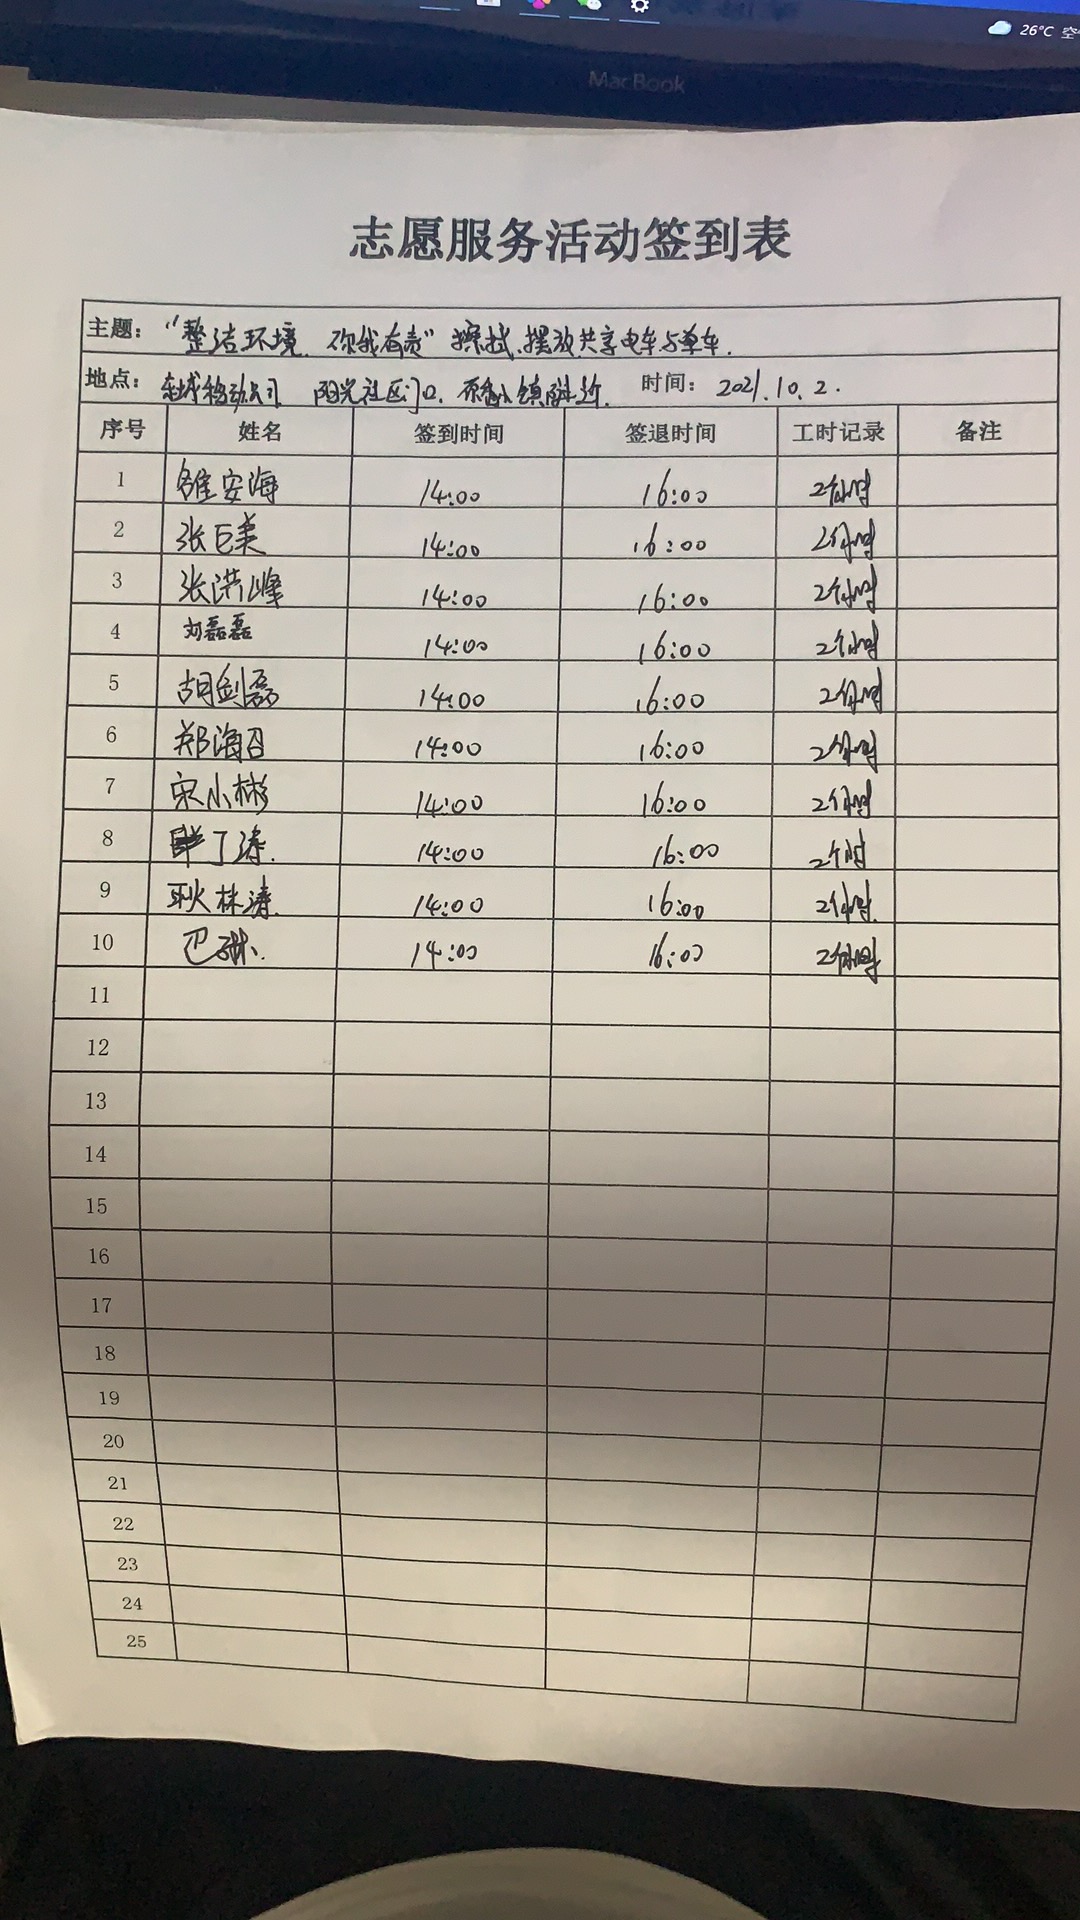 26°C
MacBook
志愿服务活动签到表
主题：“整洁环境、你我有责”擦拭、摆放共享电车与单车.
地点：东城移动公司 阳光社区门口、镇附近. 时间：2021.10.2.
序号 姓名 签到时间 签退时间 工时记录 备注
1 安海 14:00 16:00 2个小时
2 张巨美 14:00 16:00 2个小时
3 张洪峰 14:00 16:00 2个小时
4 刘磊磊 14:00 16:00 2个小时
5 胡剑磊 14:00 16:00 2个小时
6 郑海召 14:00 16:00 2个小时
7 宋小彬 14:00 16:00 2个小时
8 丁涛. 14:00 16:00 2个时
9 耿林涛. 14:00 16:00 2个小时.
10 巴琳. 14:00 16:00 2个小时
11
12
13
14
15
16
17
18
19
20
21
22
23
24
25